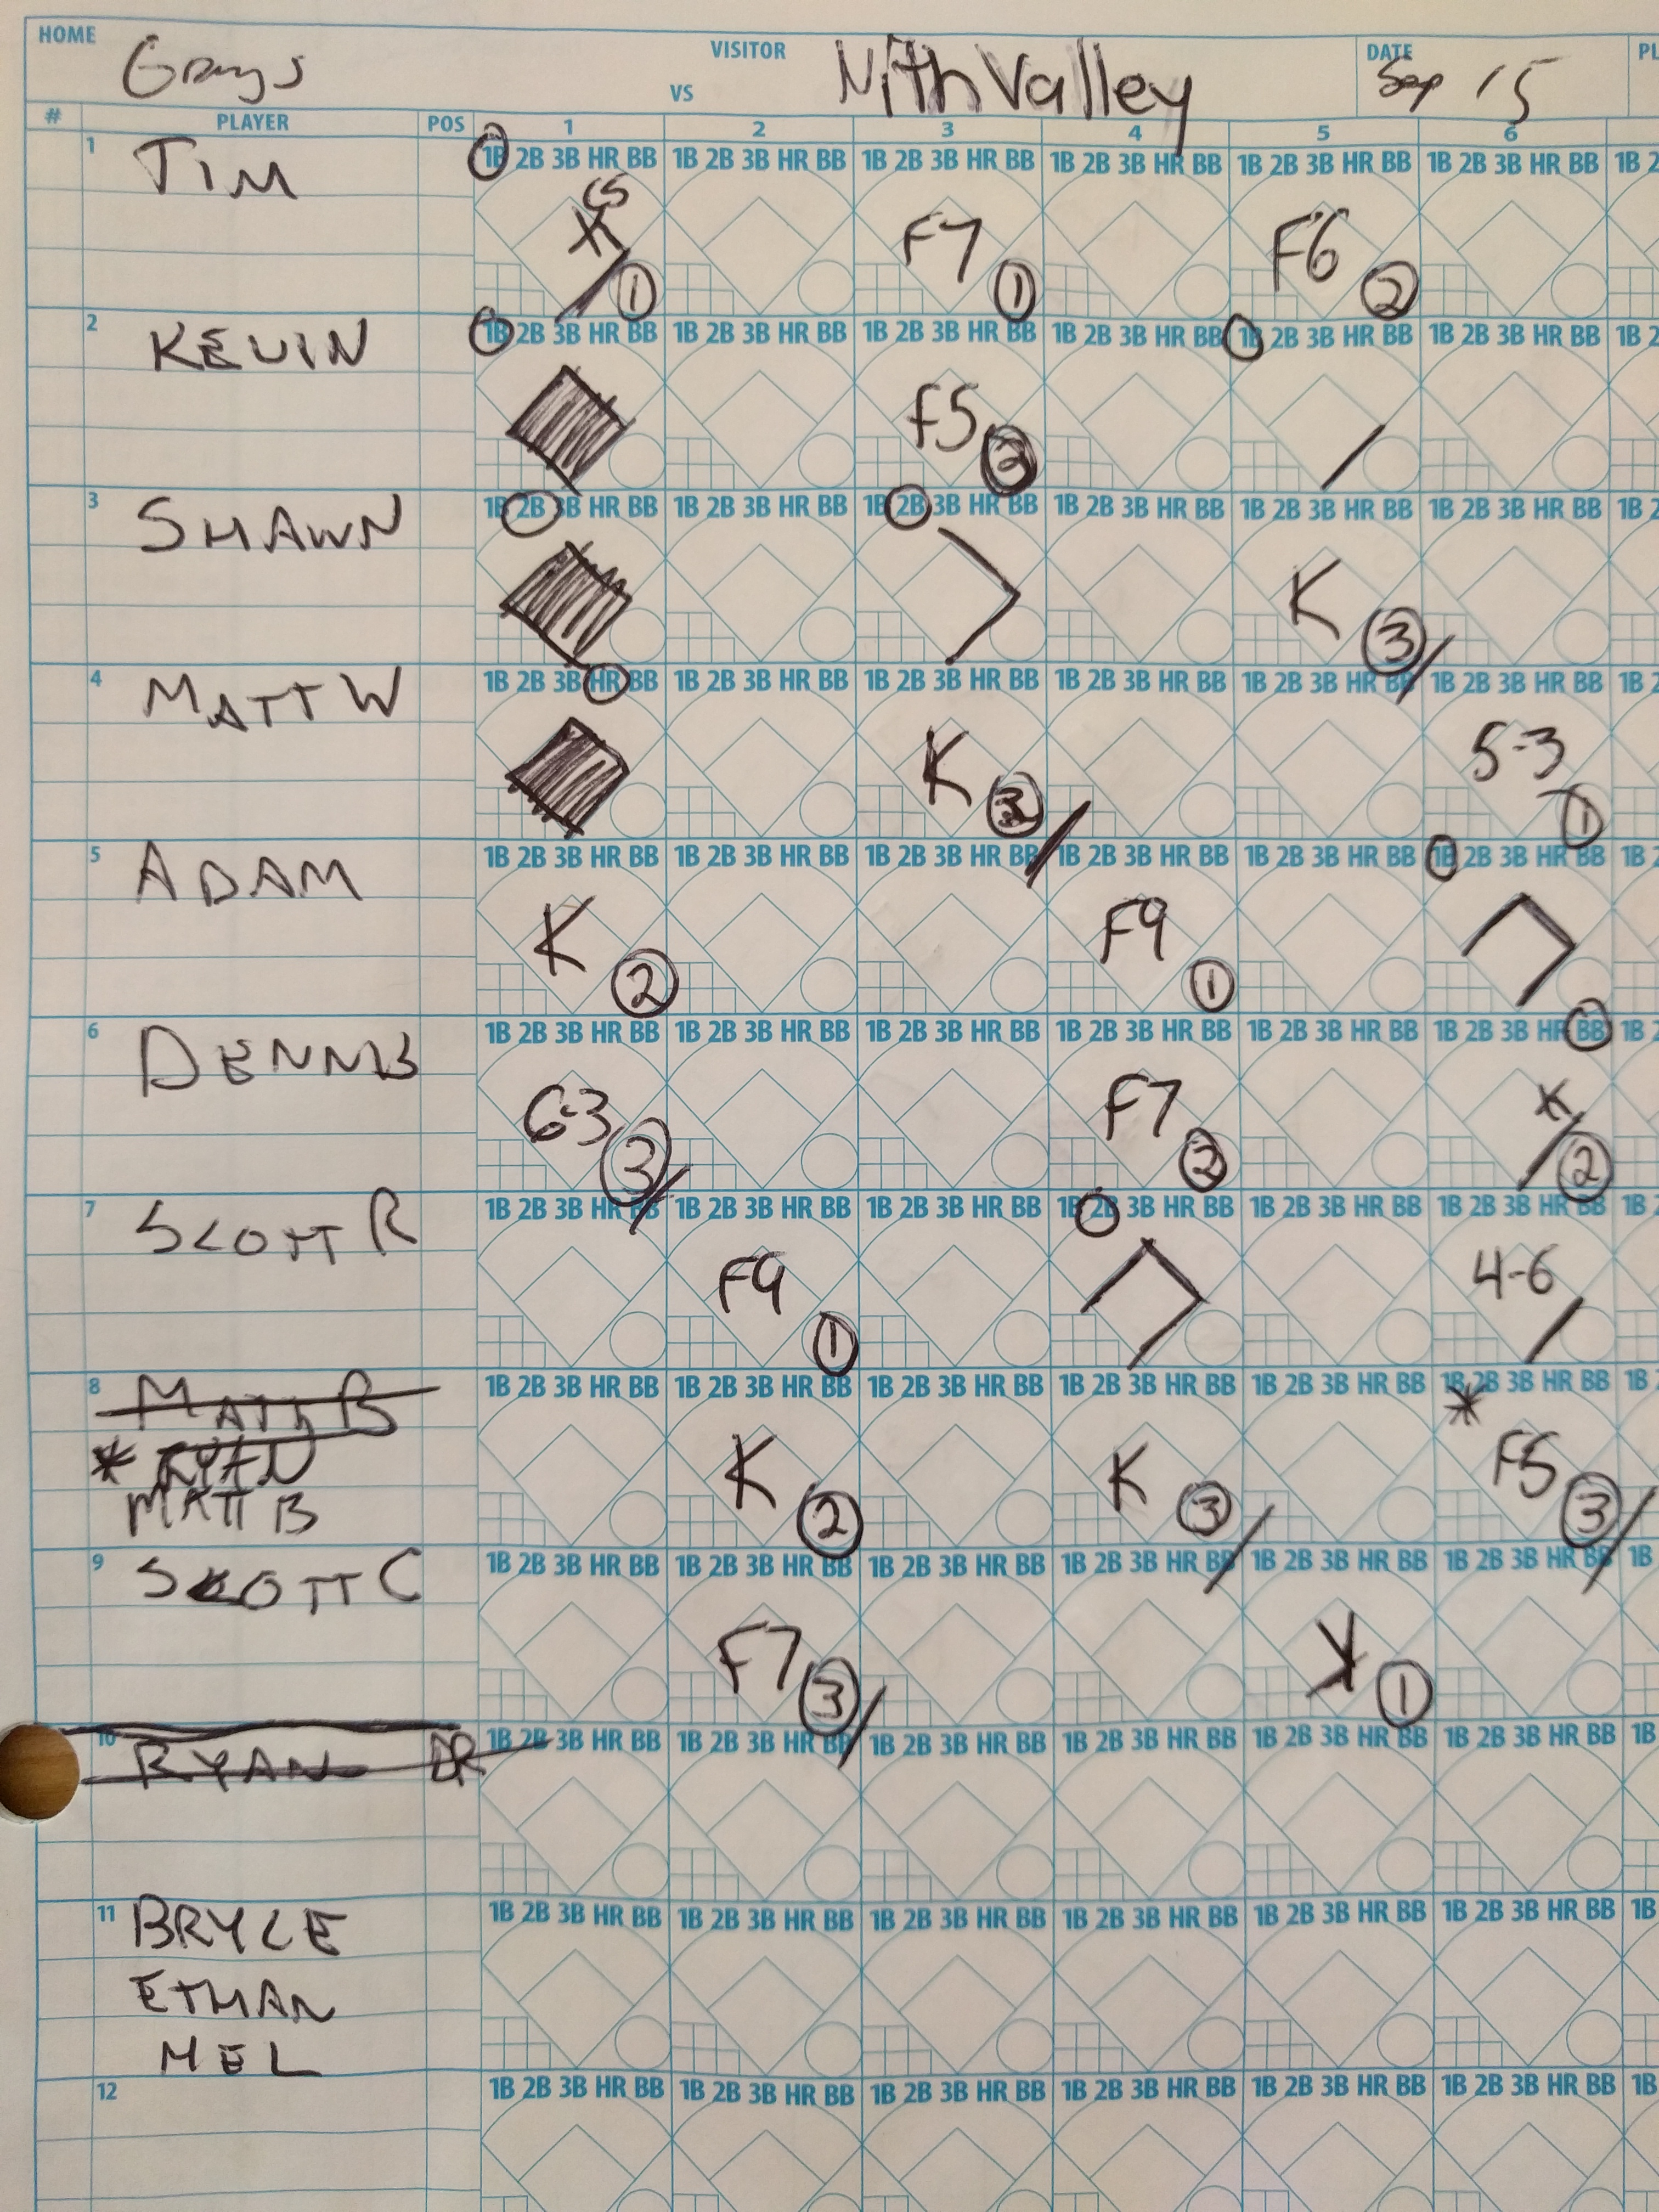 HOME Grays VISITOR VS Nith Valley DATE Sep 15 PL
# PLAYER POS 1 2 3 4 5 6
1 TIM 1B 2B 3B HR BB 1B 2B 3B HR BB 1B 2B 3B HR BB 1B 2B 3B HR BB 1B 2B 3B HR BB 1B 2B 3B HR BB 1B 2
CS
1 F7 1 F6 2
2 KEVIN 1B 2B 3B HR BB 1B 2B 3B HR BB 1B 2B 3B HR BB 1B 2B 3B HR BB 1B 2B 3B HR BB 1B 2B 3B HR BB 1B 2
F5 2
3 SHAWN 1B 2B 3B HR BB 1B 2B 3B HR BB 1B 2B 3B HR BB 1B 2B 3B HR BB 1B 2B 3B HR BB 1B 2B 3B HR BB 1B 2
K 3
4 MATT W 1B 2B 3B HR BB 1B 2B 3B HR BB 1B 2B 3B HR BB 1B 2B 3B HR BB 1B 2B 3B HR BB 1B 2B 3B HR BB 1B 2
K 3 5-3 1
5 ADAM 1B 2B 3B HR BB 1B 2B 3B HR BB 1B 2B 3B HR BB 1B 2B 3B HR BB 1B 2B 3B HR BB 1B 2B 3B HR BB 1B 2
K 2 F9 1
6 DENNIS 1B 2B 3B HR BB 1B 2B 3B HR BB 1B 2B 3B HR BB 1B 2B 3B HR BB 1B 2B 3B HR BB 1B 2B 3B HR BB 1B 2
6-3 3 F7 2 2
7 SCOTT R 1B 2B 3B HR BB 1B 2B 3B HR BB 1B 2B 3B HR BB 1B 2B 3B HR BB 1B 2B 3B HR BB 1B 2B 3B HR BB 1B 2
F9 1 4-6
8 MATT B 1B 2B 3B HR BB 1B 2B 3B HR BB 1B 2B 3B HR BB 1B 2B 3B HR BB 1B 2B 3B HR BB 1B 2B 3B HR BB 1B
* RYAN K 2 K 3 * F5 3
MATT B
9 SCOTT C 1B 2B 3B HR BB 1B 2B 3B HR BB 1B 2B 3B HR BB 1B 2B 3B HR BB 1B 2B 3B HR BB 1B 2B 3B HR BB 1B
F7 3 1
10 RYAN DR 1B 2B 3B HR BB 1B 2B 3B HR BB 1B 2B 3B HR BB 1B 2B 3B HR BB 1B 2B 3B HR BB 1B 2B 3B HR BB 1B
11 BRYCE 1B 2B 3B HR BB 1B 2B 3B HR BB 1B 2B 3B HR BB 1B 2B 3B HR BB 1B 2B 3B HR BB 1B 2B 3B HR BB 1B
ETHAN
MEL
12 1B 2B 3B HR BB 1B 2B 3B HR BB 1B 2B 3B HR BB 1B 2B 3B HR BB 1B 2B 3B HR BB 1B 2B 3B HR BB 1B